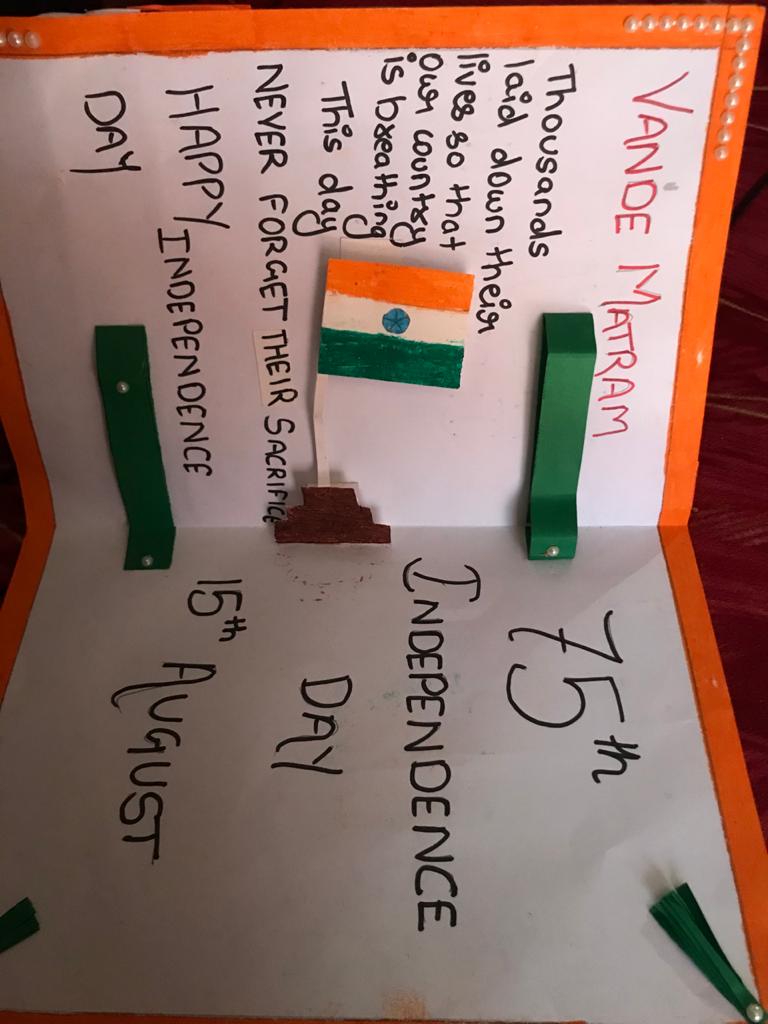 VANDE MATRAM
Thousands
laid down their
lives so that
our country
is breathing
This day
NEVER FORGET THEIR SACRIFICE
HAPPY INDEPENDENCE
DAY
75th
INDEPENDENCE
DAY
15th AUGUST